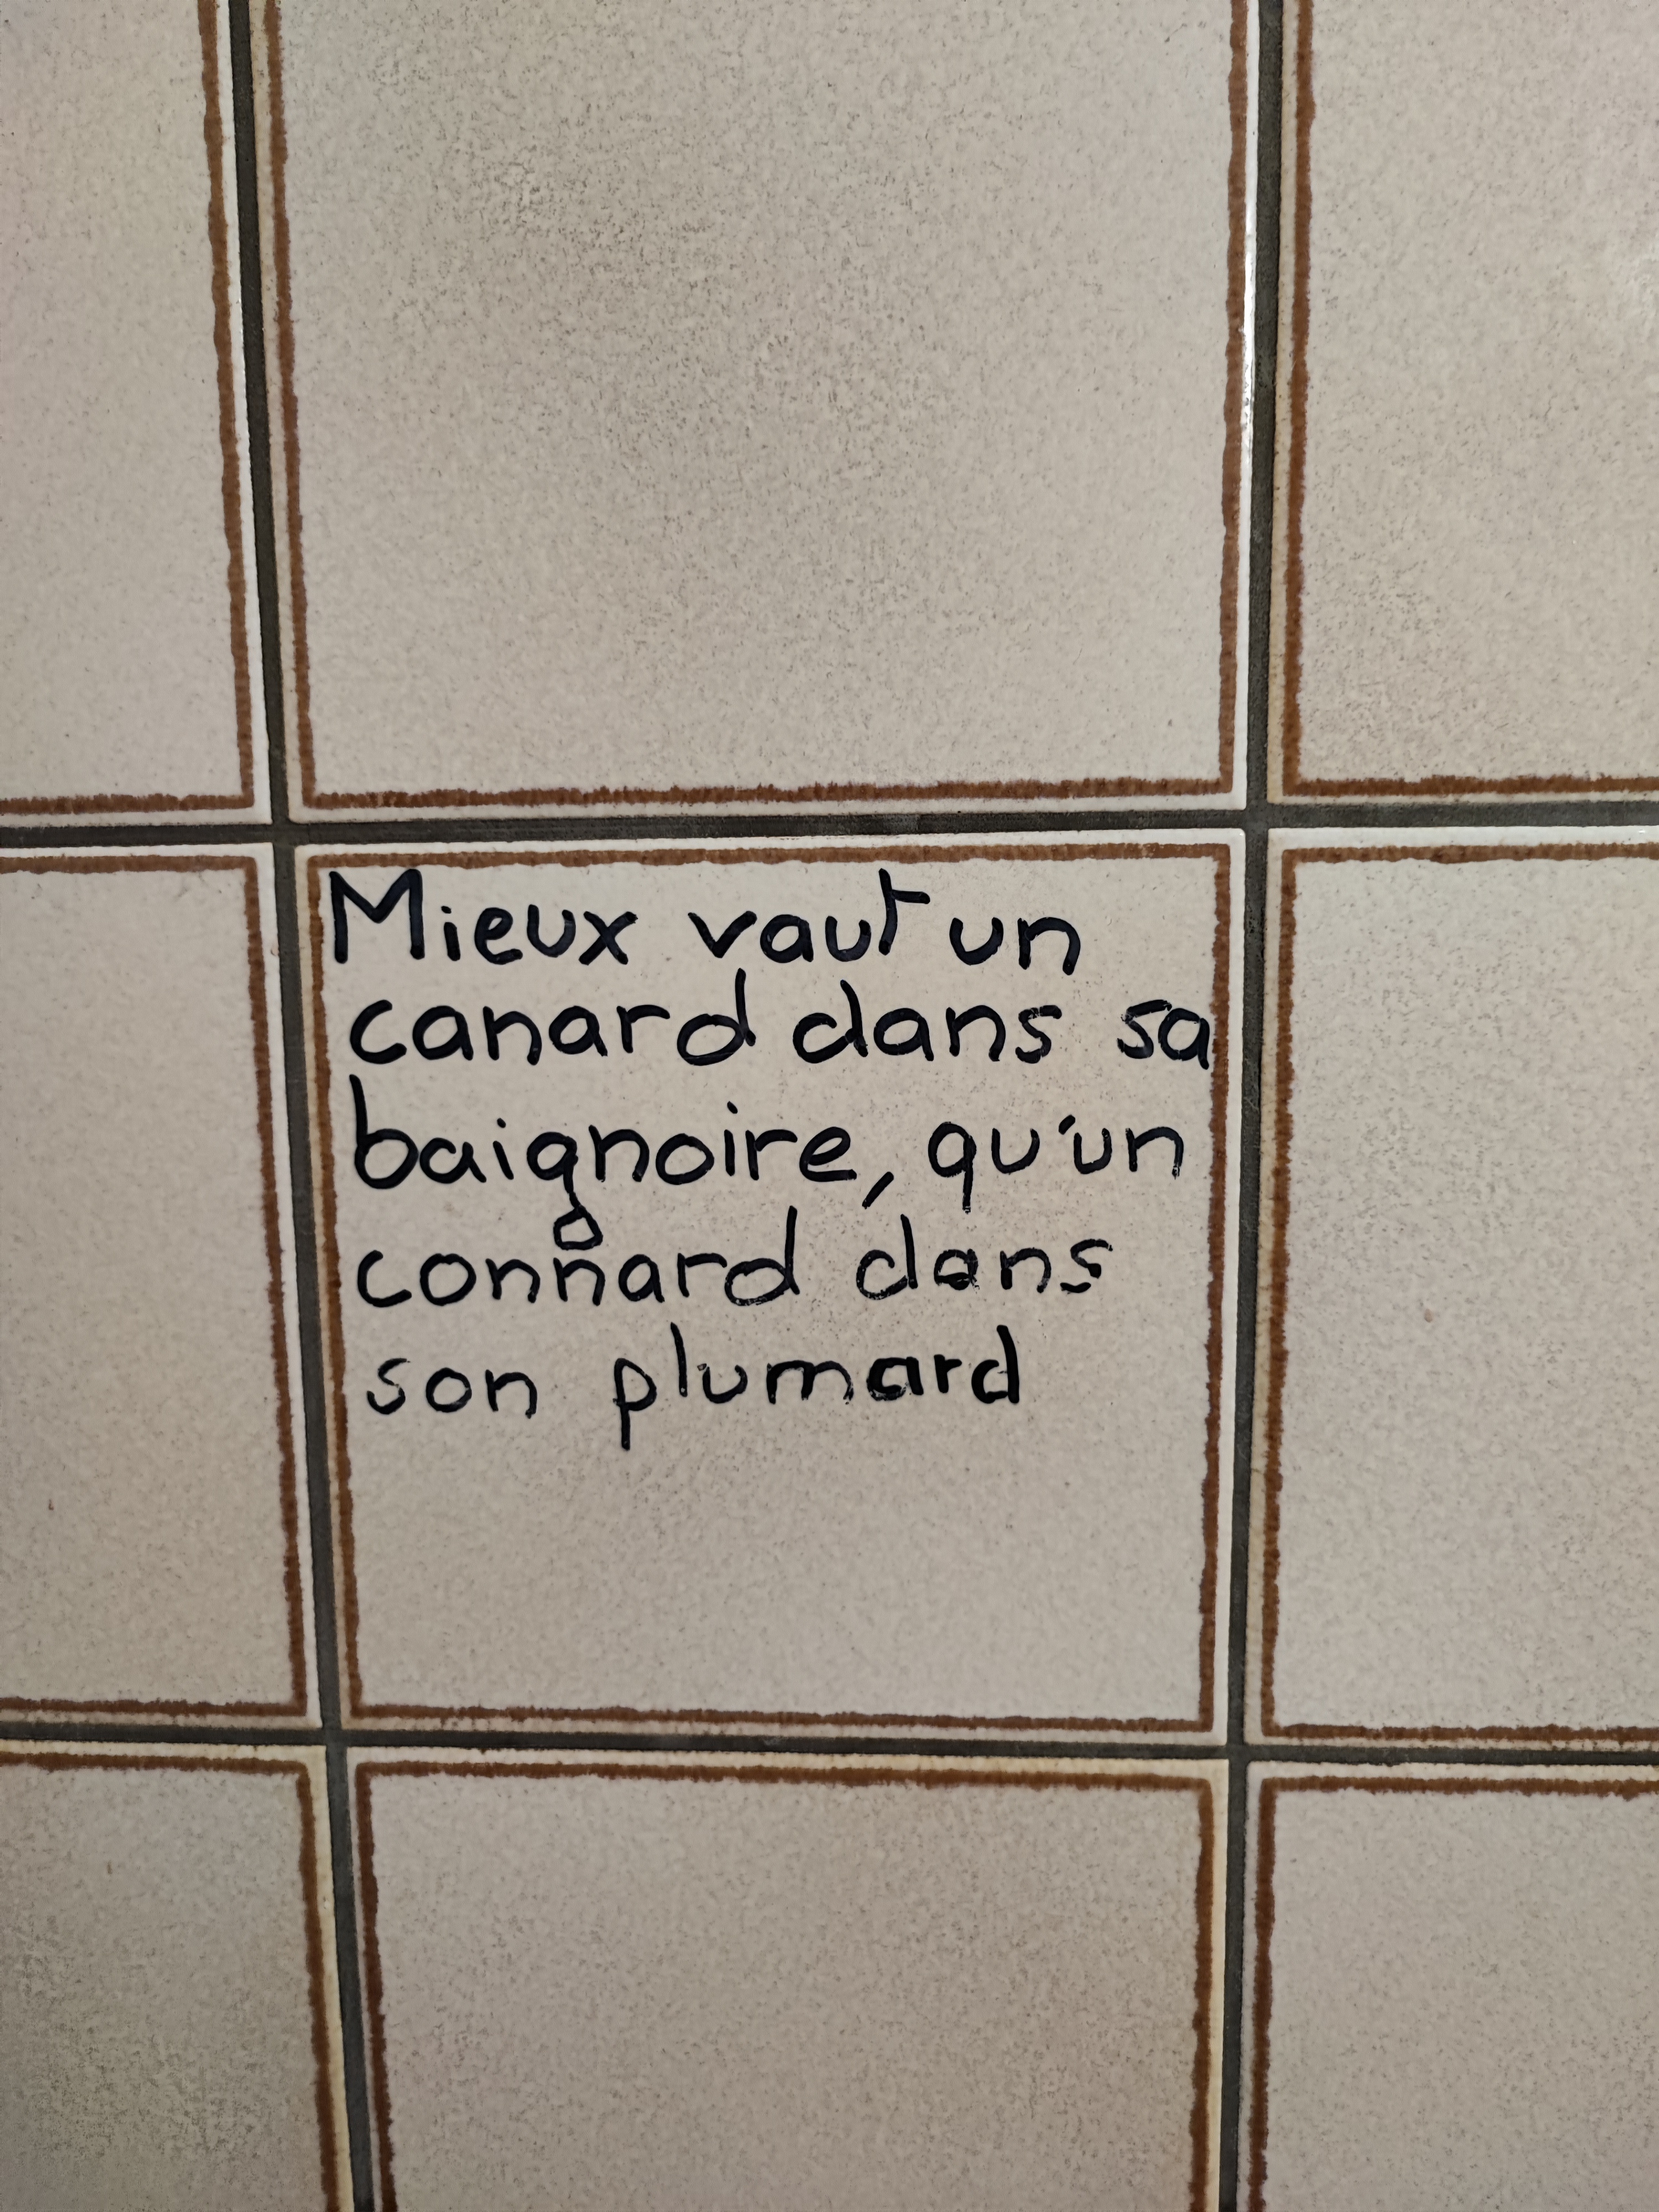 Mieux vaut un
canard dans sa
baignoire, qu'un
connard dans
son plumard